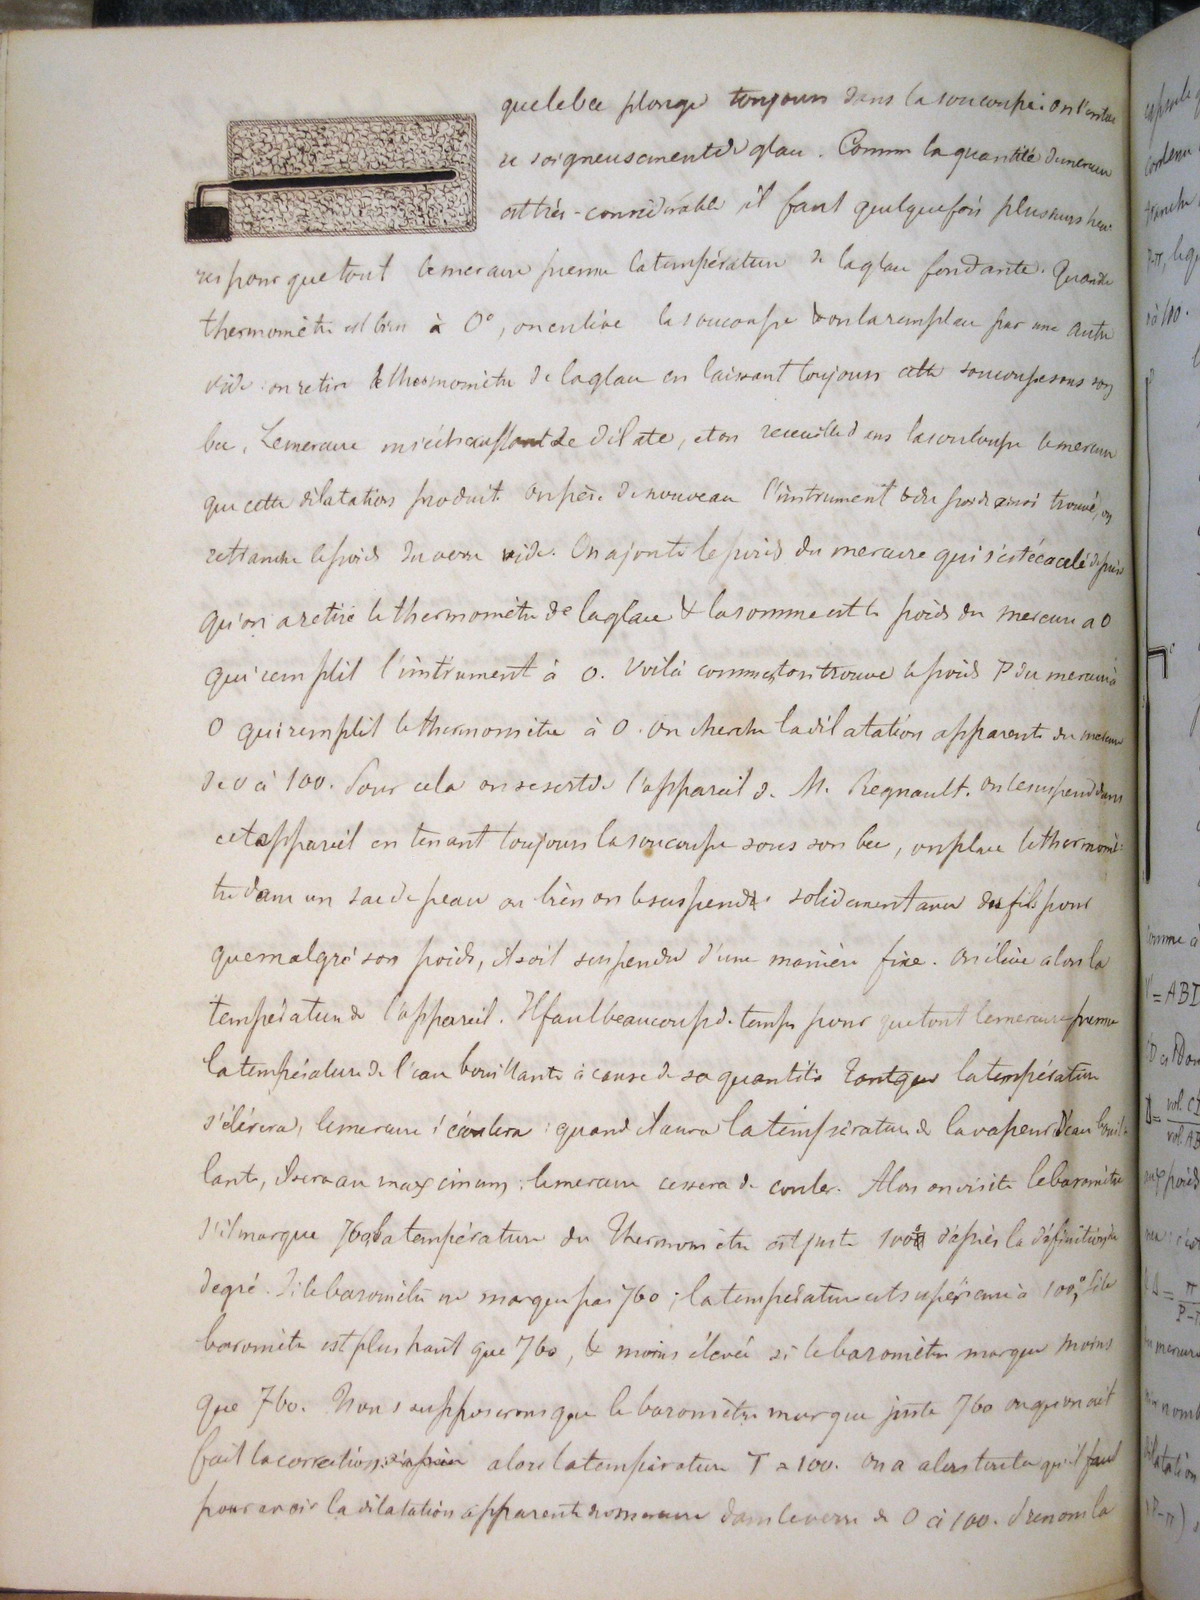 que le bec plonge toujours dans la soucoupe. On l'entou
re soigneusement de glace. Comme la quantité du mercure
est très-considérable il faut quelquefois plusieurs heu
res pour que tout le mercure prenne la température de la glace fondante. Quand le
thermomètre est bien à 0°, on enlève la soucoupe & on la remplace par une autre
vide on retire le thermomètre de la glace en laissant toujours cette soucoupe sous son
bec. Le mercure en s'échauffant se dilate, et on recueille dans la soucoupe le mercure
que cette dilatation produit. On pèse de nouveau l'instrument & du poids ainsi trouvé, on
retranche le poids du verre vide. On ajoute le poids du mercure qui s'est écoulé depuis
qu'on a retiré le thermomètre de la glace & la somme est le poids du mercure a 0
qui remplit l'instrument à 0. Voilà comment on trouve le poids P du mercure à
0 qui remplit le thermomètre à 0. On cherche la dilatation apparente du mercure
de 0 à 100. Pour cela on se sert de l'appareil de M. Regnault. On le suspend dans
cet appareil en tenant toujours la soucoupe sous son bec, on place le thermomè-
tre dans un sac de peau ou bien on le suspend solidement avec des fils pour
que malgré son poids, il soit suspendu d'une manière fixe. On élève alors la
température de l'appareil. Il faut beaucoup de temps pour que tout le mercure prenne
la température de l'eau bouillante à cause de sa quantité. Tant que la température
s'élèvera, le mercure s'écoulera : quand il aura la température de la vapeur d'eau bouil-
lante, il sera au maximum : le mercure cessera de couler. Alors on visite le baromètre
s'il marque 760, la température du thermomètre est juste 100 d'après la définition du
degré. Si le baromètre ne marque pas 760 ; la température est supérieure à 100°, si le
baromètre est plus haut que 760, & moins élevée si le baromètre marque moins
que 760. Nous supposerons que le baromètre marque juste 760 ou qu'on ait
fait la correction alors la température T = 100. On a alors tout ce qu'il faut
pour avoir la dilatation apparente du mercure dans le verre de 0 à 100. Prenons la